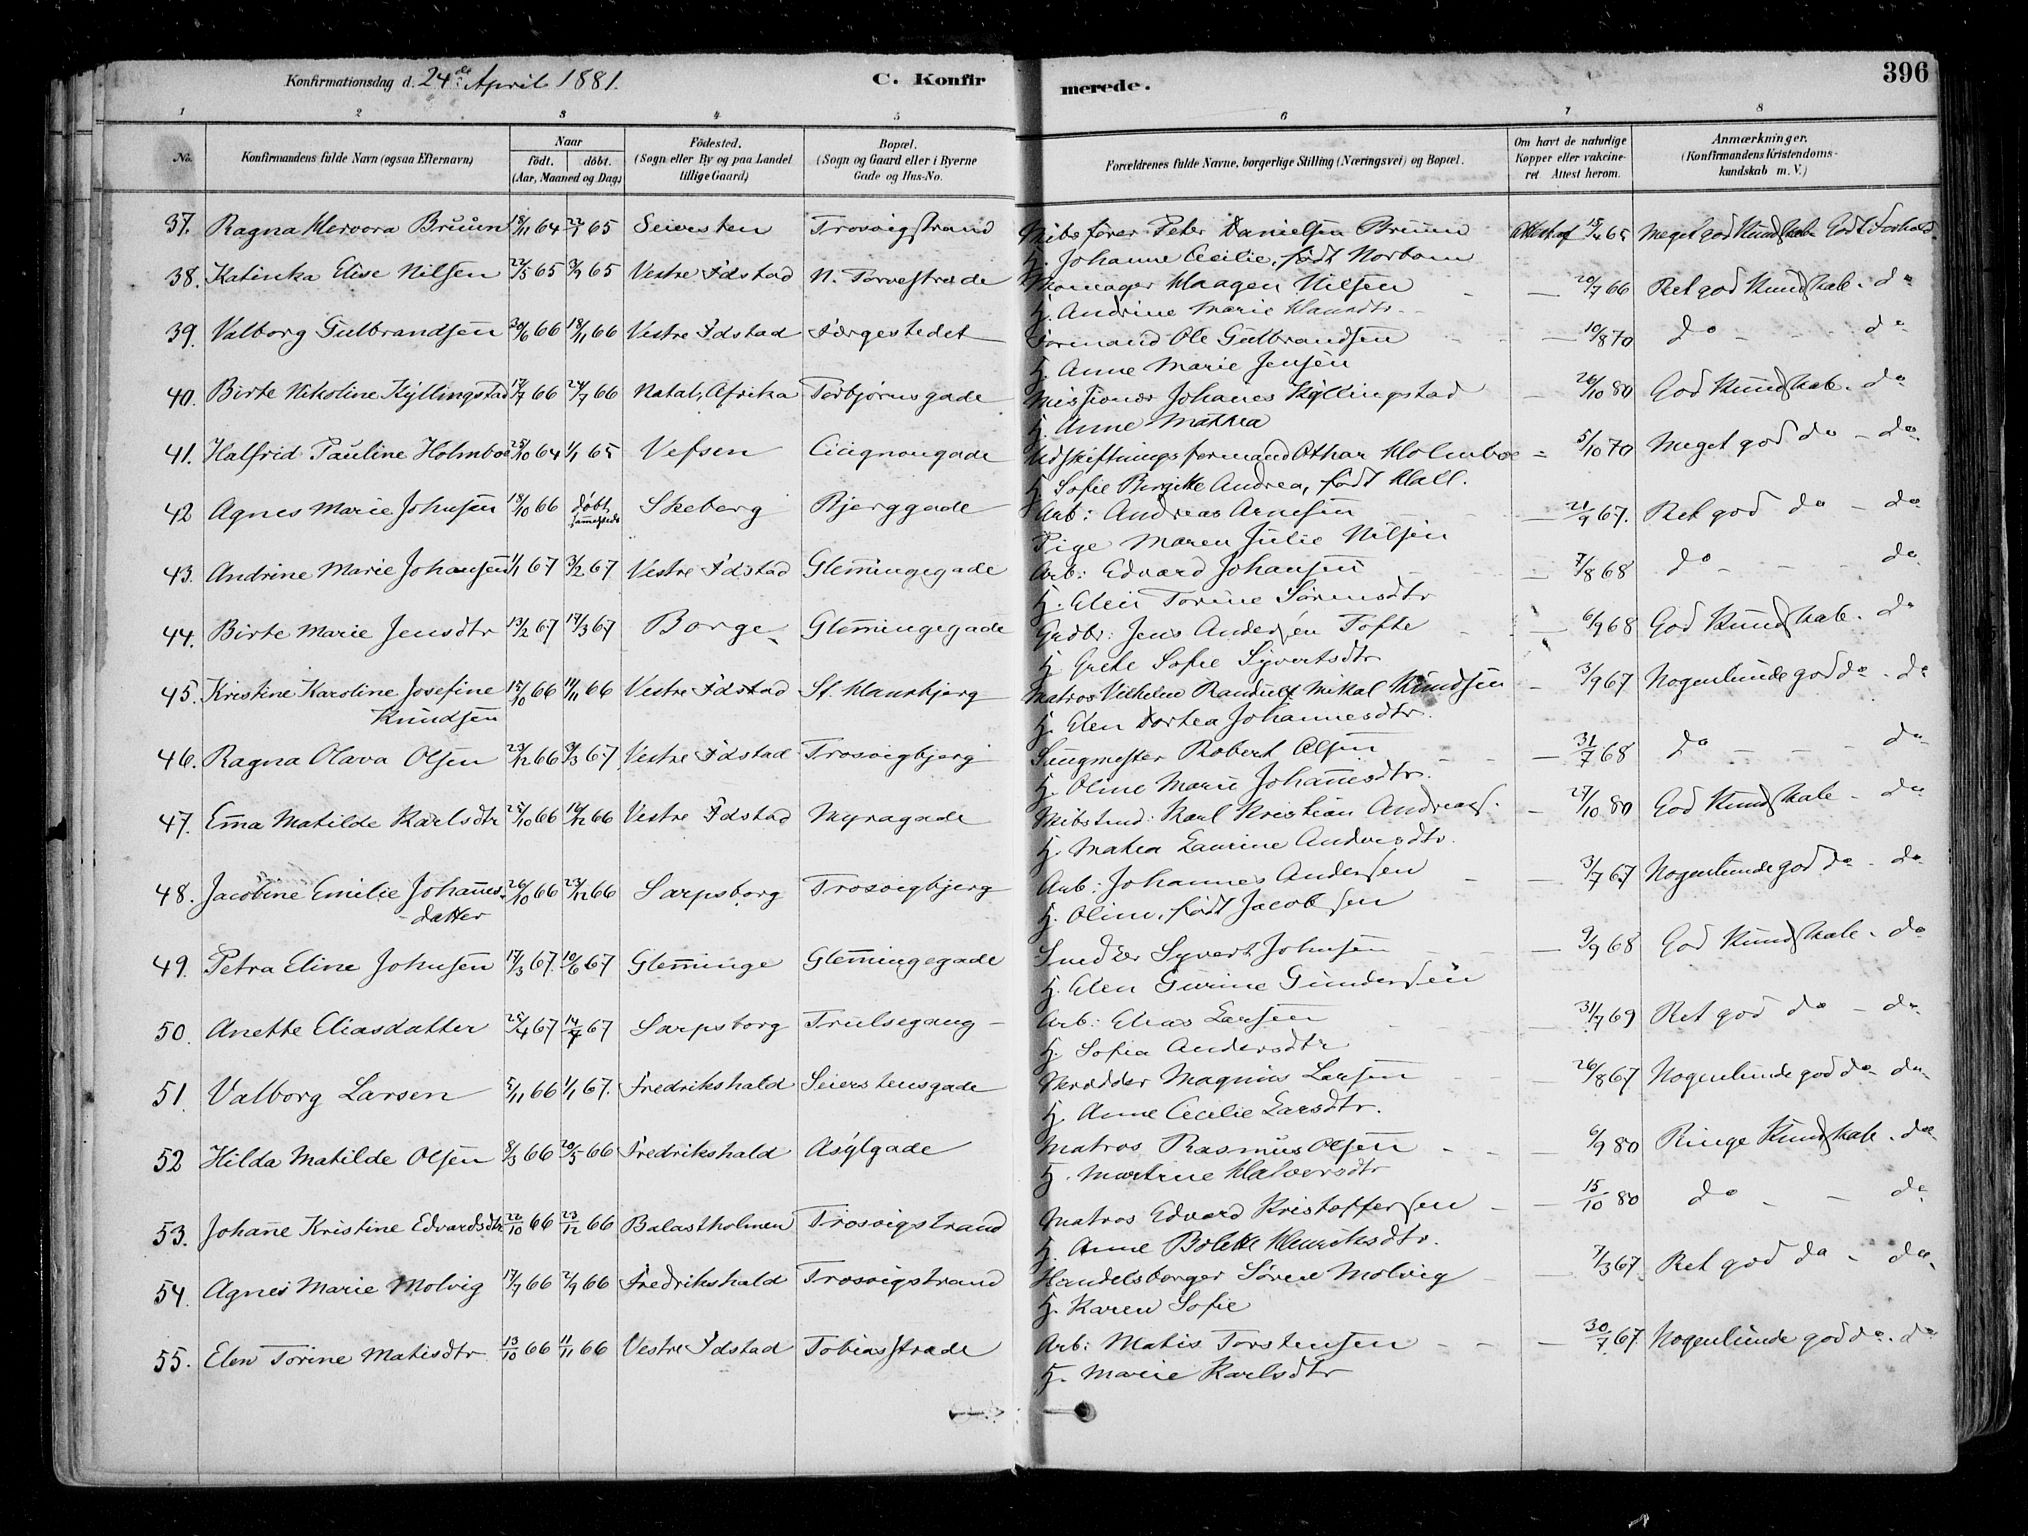 Konfirmationsdag d. 24de April 1881. C. Konfir merede. 396
1 2 3 4 5 6 7 8
No. Konfirmandens fulde Navn (ogsaa Efternavn) Naar født. døbt. (Aar, Maaned og Dag) Fødested. (Sogn eller By og paa Landet tillige Gaard) Bopæl. (Sogn og Gaard eller i Byerne Gade og Hus-No. Forældrenes fulde Navne, borgerlige Stilling (Næringsvei) og Bopæl. Om havt de naturlige Kopper eller vakcineret. Attest herom. Anmærkninger. (Konfirmandens Kristendomskundskab m. V.)
37. Ragna Hervora Bruun 18/11 64 22/1 65 Seiersten Trosvigstrand Skibsfører Peter Danielsen Bruun Attest af 15/4 65 Meget god Kundskab Godt Forhold
H. Johanne Cecilie, født Norbom
38. Katinka Elise Nilsen 22/5 65 3/9 65 Vestre Fdstad N. Torvestræde Skomager Haagen Nilsen — 20/7 66 Ret god Kundskab. do
H. Andrine Marie Hansdtr.
39. Valborg Gulbrandsen 30/6 66 18/11 66 Vestre Fdstad Færgestedet Formand Ole Gulbrandsen — 10/8 70 do - - do
H. Anne Marie Jensen
40. Birte Nikoline Kyllingstad 17/7 66 24/7 66 Natal, Afrika Torbjørnsgade Missionær Johanes Kyllingstad - 26/10 80 God Kundskab. do
H. Anne Mathea
41. Halfrid Pauline Holmboe 28/10 64 1/1 65 Vefsen Cicignongade Udskiftningsformand Othar Holmboe - 5/10 70 Meget god do - do
H. Sofie Birgitte Andrea, født Hall.
42 Agnes Marie Johnsen 18/10 66 døbt sammesteds Skeberg Bjerggade Arb: Andreas Arnesen — 21/9 67. Ret god do - do
Pige Maren Julie Nilsen
43. Andrine Marie Johansen 1/1 67 3/2 67 Vestre Fdstad Glemmingegade Arb: Edvard Johansen — 7/8 68 do - - do
H. Elen Torine Sørensdtr
44. Birte Marie Jensdtr 13/2 67 17/3 67 Borge Glemmingegade Grdbr: Jens Andersen Tofte — 6/9 68 God Kundskab. do
H. Grete Sofie Syvertsdtr
45. Kristine Karoline Josefine 15/10 66 11/11 66 Vestre Fdstad St. Hansbjerg Matros Vilhelm Randulf Mikal Knudsen - 3/9 67 Nogenlunde god do. do
Knudsen H. Elen Dortea Johannesdtr.
46. Ragna Olava Olsen 23/12 66 3/3 67 Vestre Fdstad Trosvigbjerg Saugmester Robert Olsen — 31/7 68 do - - do
H. Oline Marie Johannesdtr.
47. Emma Matilde Karlsdtr 25/10 66 16/12 66 Vestre Fdstad Myragade Skibstmd: Karl Kristian Andreas. - 27/10 80 God Kundskab - do
H. Matea Laurine Andersdtr.
48. Jacobine Emilie Johannes- 26/10 66 23/12 66 Sarpsborg Trosvigbjerg Arb: Johannes Andersen — 3/7 67 Nogenlunde god do - do
datter H. Oline, født Jacobsen
49. Petra Eline Johnsen 17/3 67. 10/6 67 Glemminge Glemmingegade Snedker Syvert Johnsen — 9/9 68 God Kundskab. do
H. Elen Gurine Gundersen
50. Anette Eliasdatter 28/4 67 14/7 67 Sarpsborg Trulsegang Arb: Elias Larsen — 31/7 69 Ret god do - do
H. Sofia Andersdtr
51. Valborg Larsen 5/11 66 1/1 67. Fredrikshald Seierstensgade Skrædder Magnus Larsen — 26/8 67 Nogenlunde god do - do
H. Anne Cecilie Larsdtr.
52 Hilda Matilde Olsen 8/3 66 20/5 66 Fredrikshald Asylgade Matros Rasmus Olsen - 6/9 80 Ringe Kundskab. do
H. Martine Halvorsdtr
53. Johanne Kristine Edvardsdtr 22/10 66 23/12 66 Balastholmen Trosvigstrand Matros Edvard Kristoffersen — 15/10 80 do - - do
H. Anne Bolette Henriksdtr.
54. Agnes Marie Molvig 17/7 66 2/9 66 Fredrikshald Trosvigstrand Handelsborger Sören Molvig — 7/3 67. Ret god do - do
H. Karen Sofie
55. Elen Torine Matisdtr 13/10 66 11/11 66 Vestre Fdstad Tobiasstræde Arb: Matis Torstensen — 30/7 67 Nogenlunde god do. do
H. Marie Karlsdtr